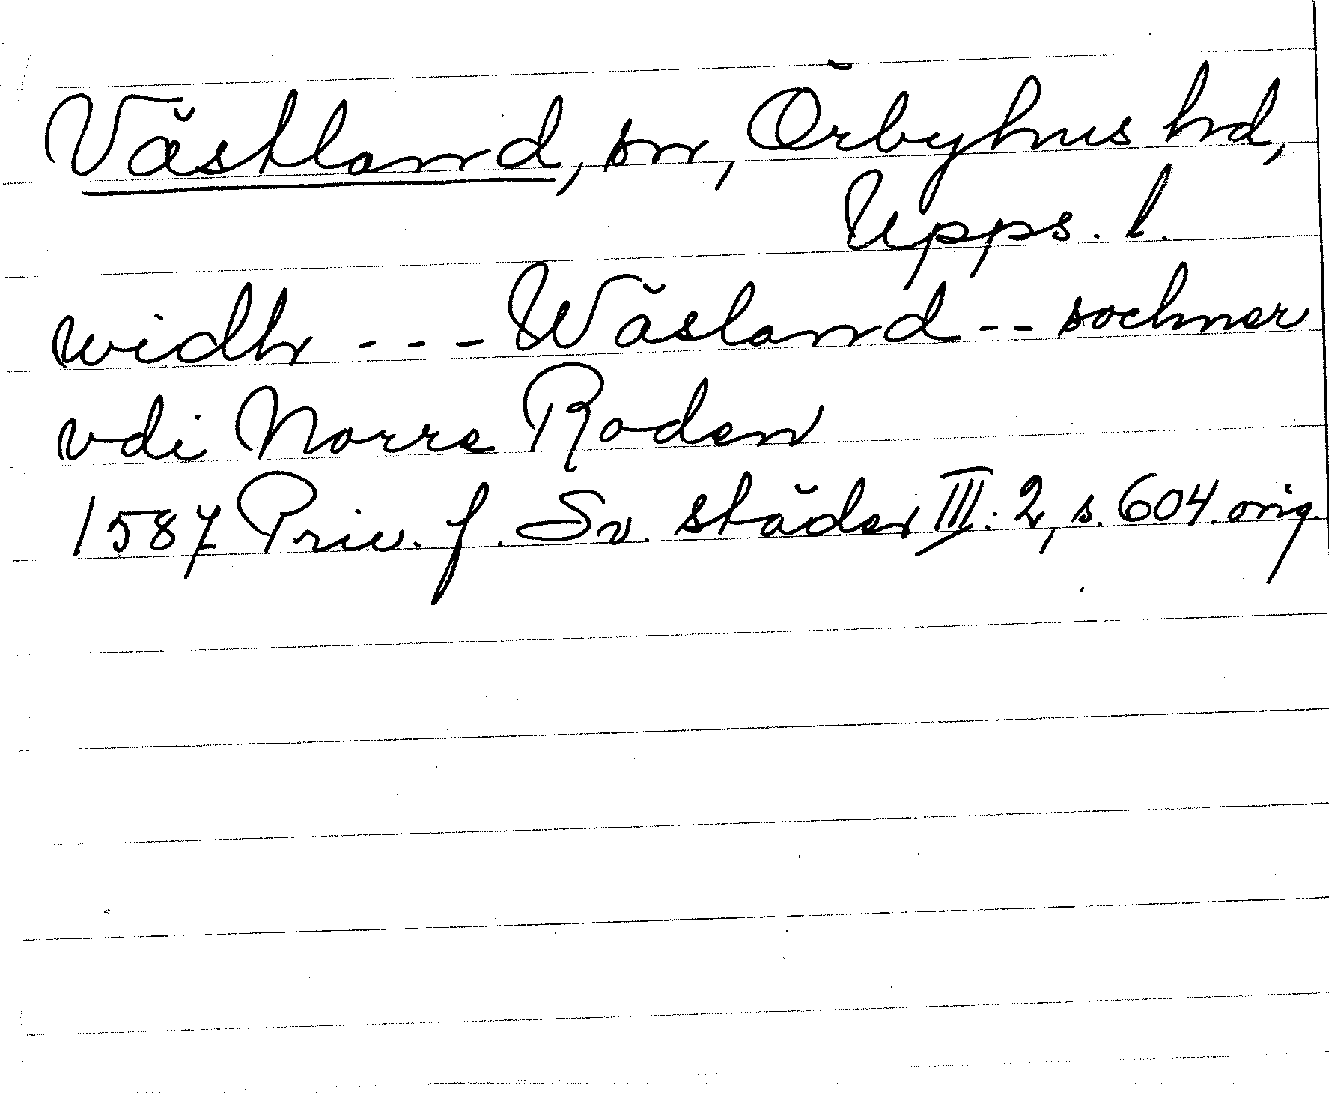 Västland, sn, Örbyhus hd,
Upps. l.
widh - - - Wäsland - - sochner
vdi Norre Roden
1587 Priv. f. Sv. städer III: 2, s. 604. orig.